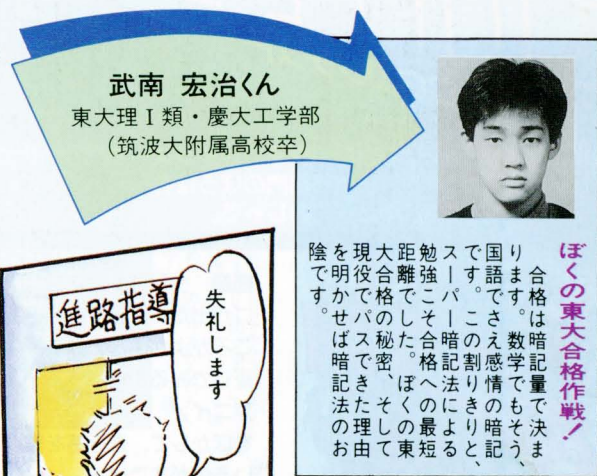 武南 宏治くん
東大理Ⅰ類・慶大工学部
（筑波大附属高校卒）
ぼくの東大合格作戦！
合格は暗記量で決ま
ります。数学でもそう、
国語でさえ感情の暗記
です。この割りきりと、
スーパー暗記法による
勉強こそ合格への最短
距離でした。ぼくの東
大合格の秘密、そして
現役でパスできた理由
を明かせば暗記法のお
陰です。
進路指導
失礼します